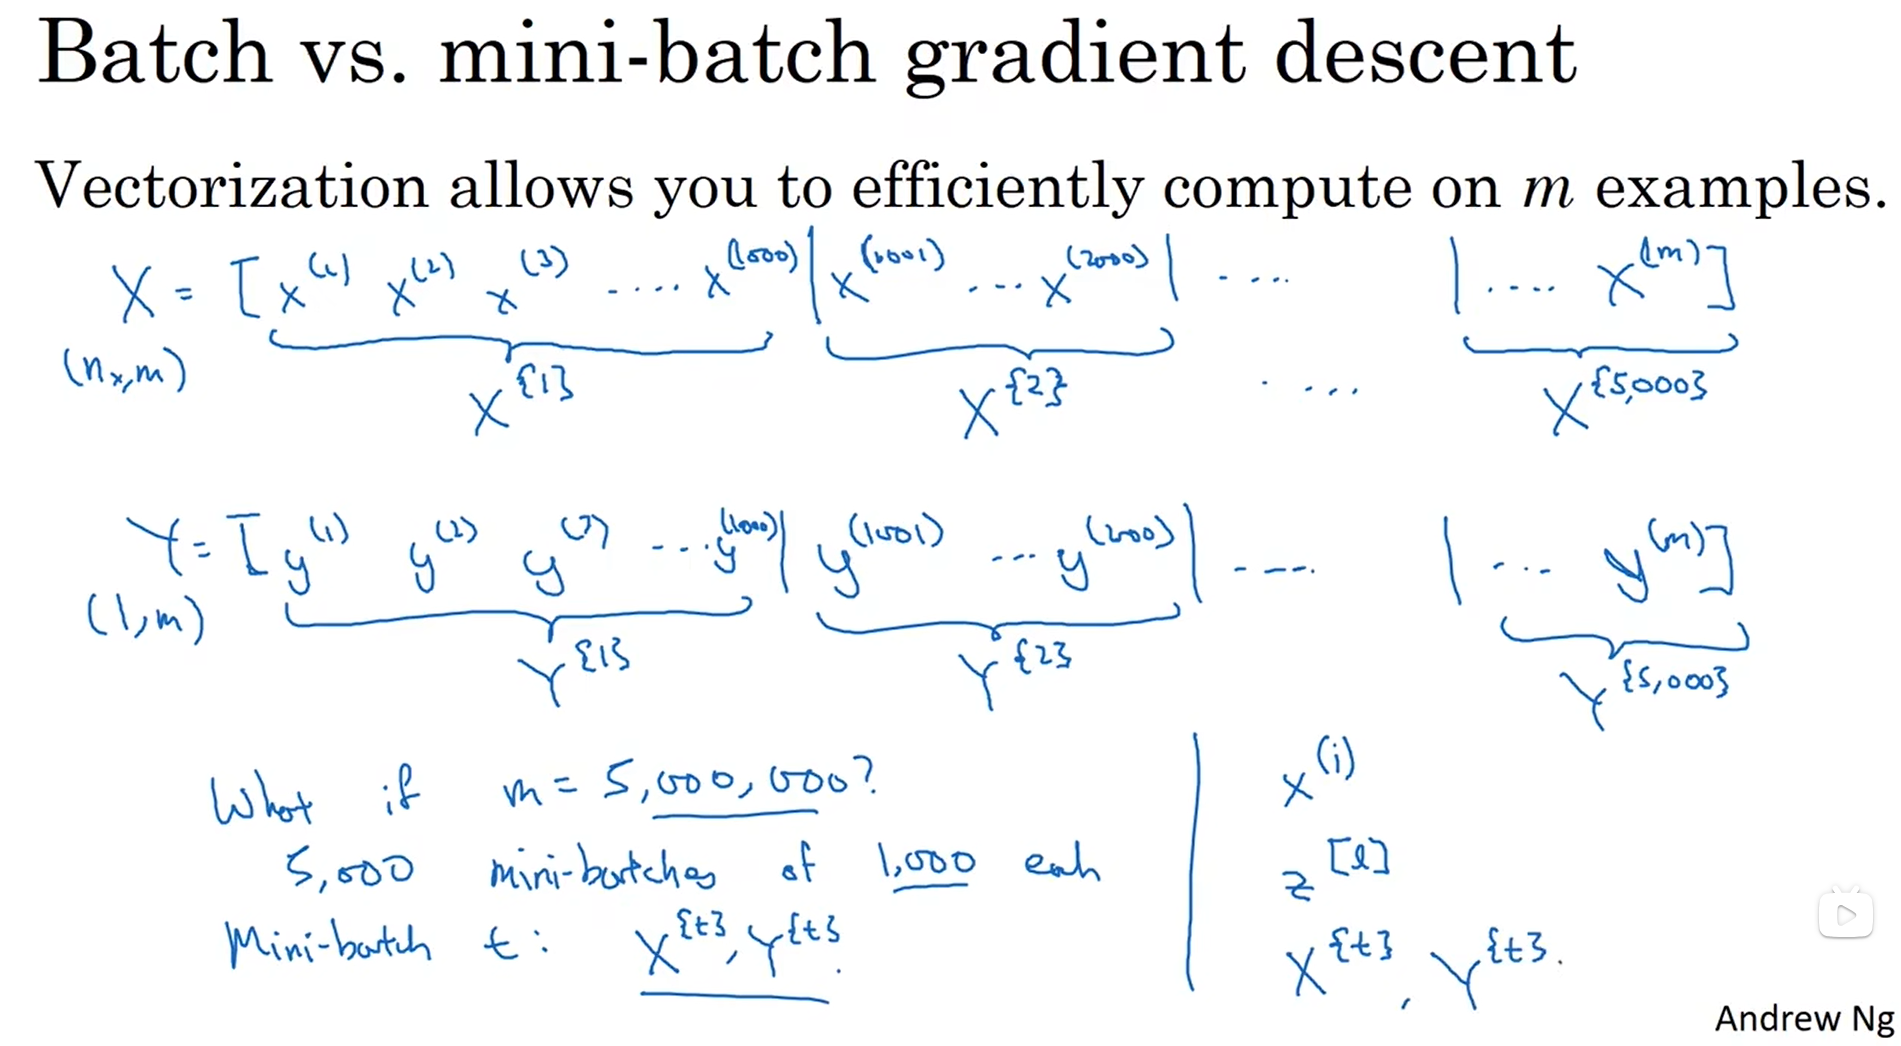 Batch vs. mini-batch gradient descent
Vectorization allows you to efficiently compute on m examples.
X = [x^(1) x^(2) x^(3) ..... x^(1000) | x^(1001) ... x^(2000) | .... | .... x^(m)]
(n_x, m)
X^{1} X^{2} .... X^{5,000}
Y = [y^(1) y^(2) y^(3) ... y^(1000) | y^(1001) ... y^(2000) | .... | ... y^(m)]
(1, m)
Y^{1} Y^{2} Y^{5,000}
What if m = 5,000,000?
5,000 mini-batches of 1,000 each
Mini-batch t: X^{t}, Y^{t}.
x^(i)
z^[l]
X^{t}, Y^{t}.
Andrew Ng